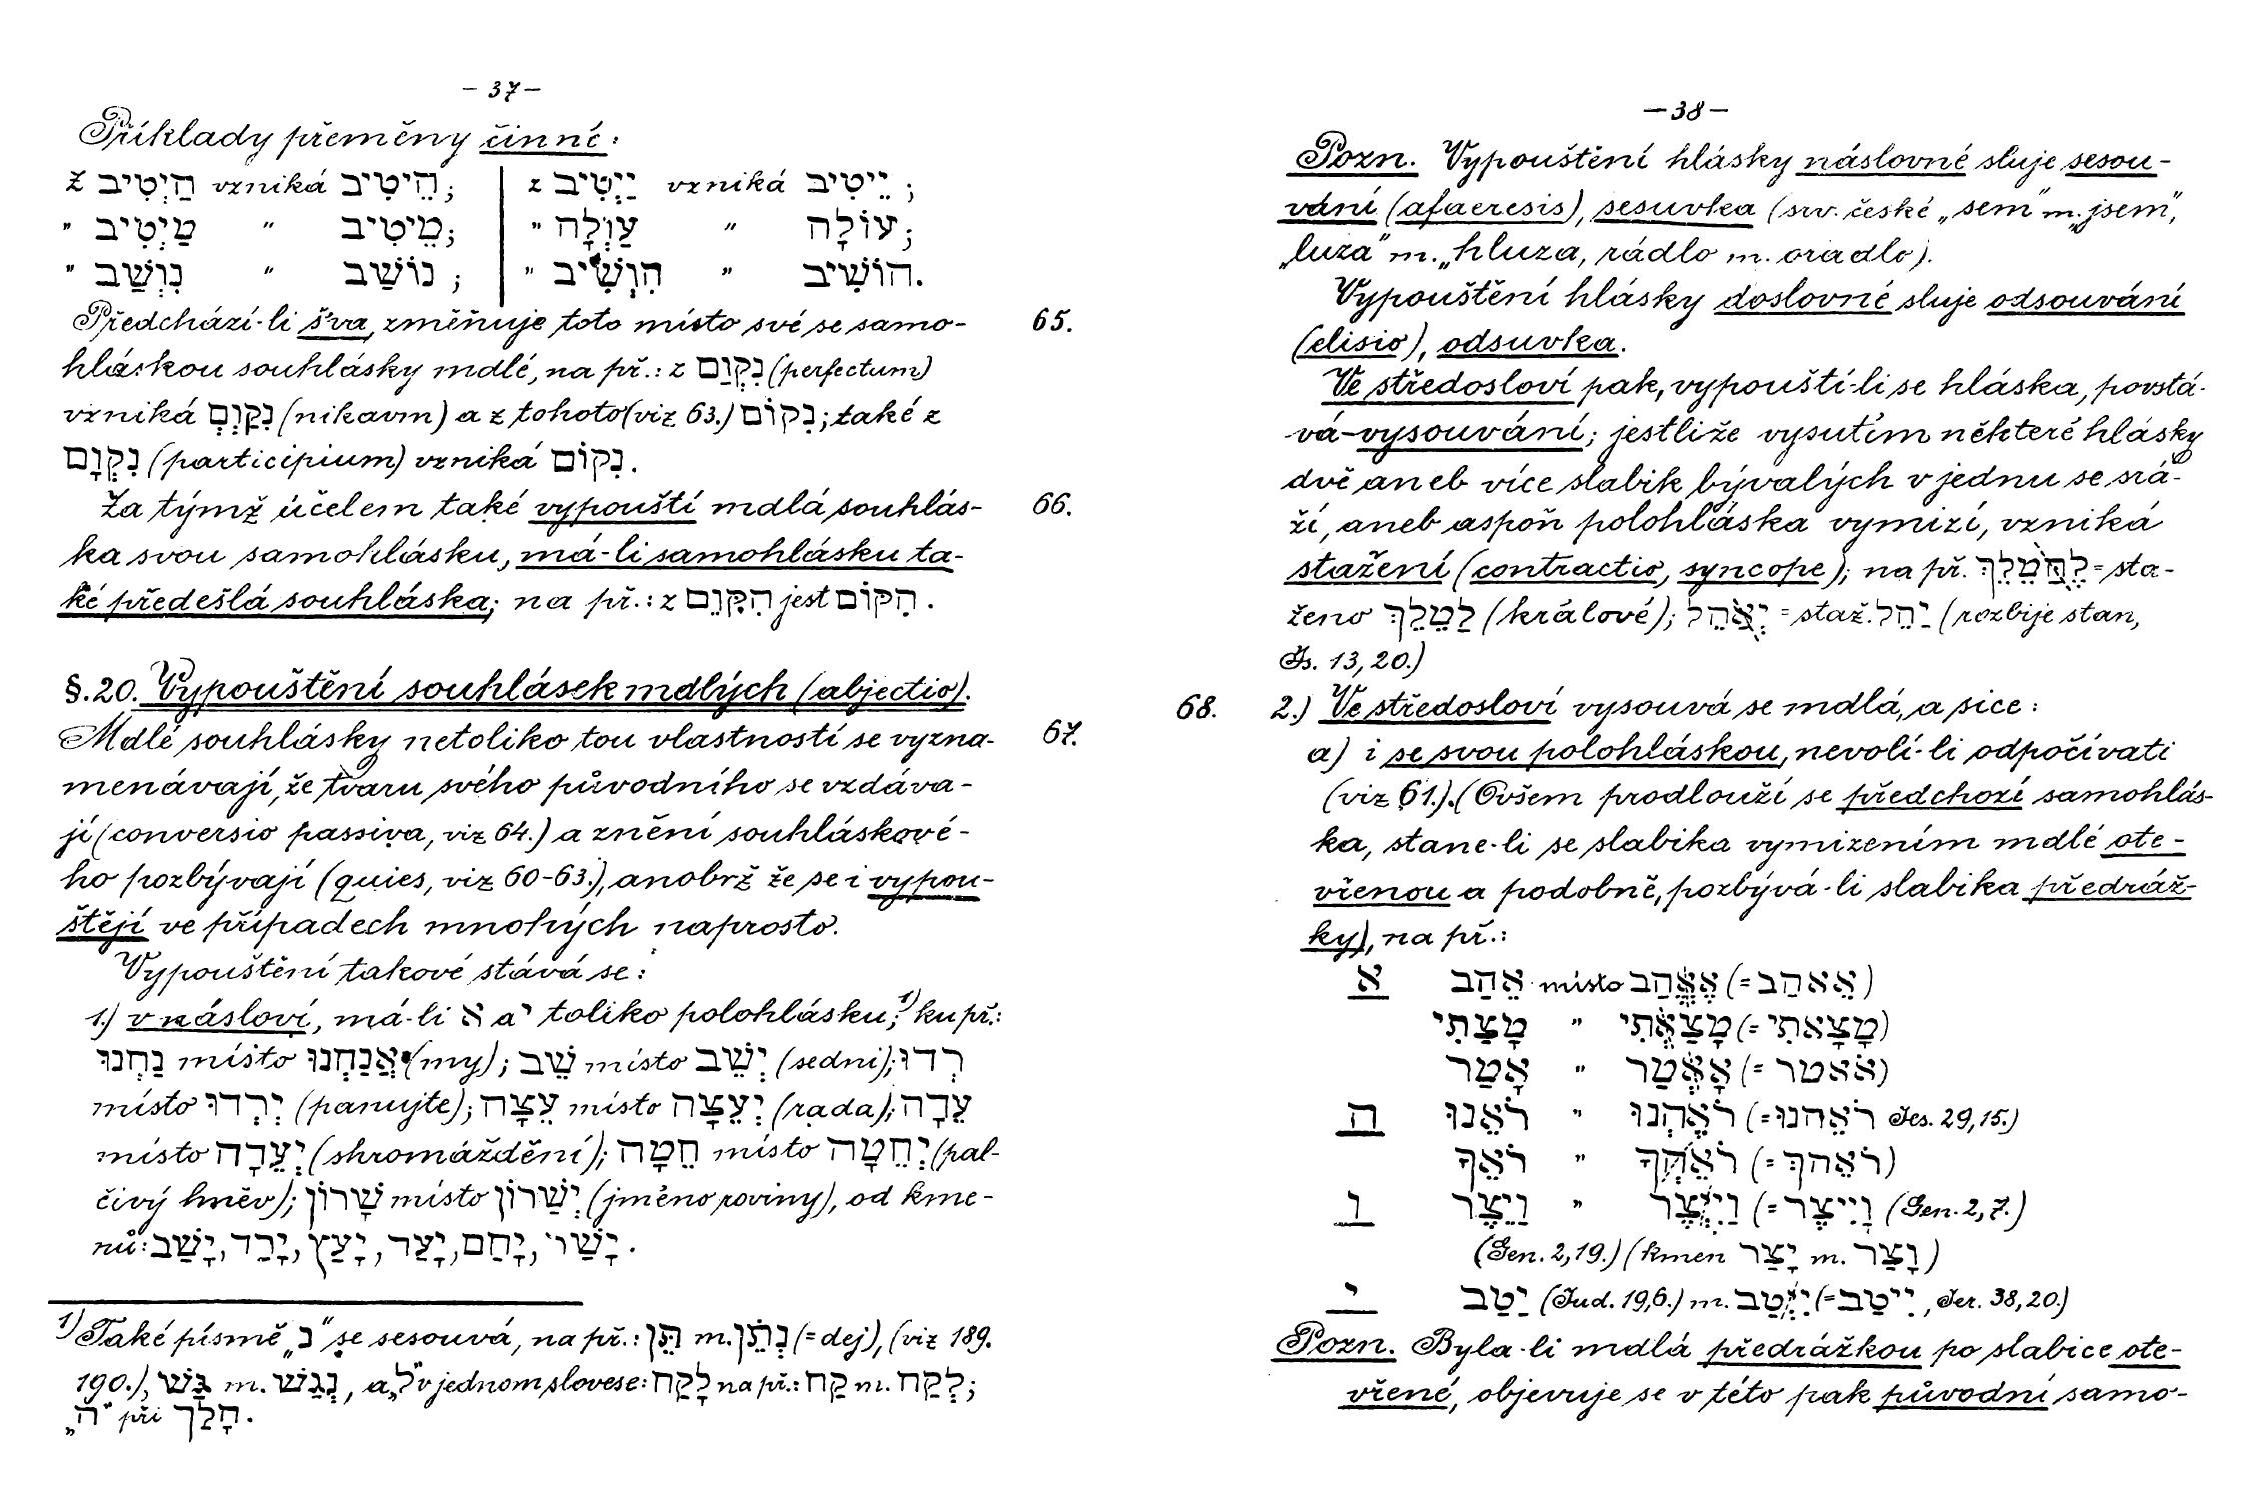 – 37 –
Příklady přeměny činné:
Z הַיְטִיב vzniká הֵיטִיב; z יַיְטִיב vzniká יֵיטִיב;
" מַיְטִיב " מֵיטִיב; " עַוְלָה " עוֹלָה;
" נַוְשַׁב " נוֹשַׁב; " הַוְשִׁיב " הוֹשִׁיב.
Předchází-li šva, změňuje toto místo své se samo- 65.
hláskou souhlásky mdlé, na př.: z נִקְוַם (perfectum)
vzniká נִקַוְם (nikavm) a z tohoto (viz 63.) נִקוֹם; také z
נִקְוָם (participium) vzniká נִקוֹם.
Za týmž účelem také vypouští mdlá souhlás- 66.
ka svou samohlásku, má-li samohlásku ta-
ké předešlá souhláska; na př.: z הִקַּוֵם jest הִקּוֹם.
§. 20. Vypouštění souhlásek mdlých (abjectio).
Mdlé souhlásky netoliko tou vlastností se vyzna- 67.
menávají, že tvaru svého původního se vzdáva-
jí (conversio passiva, viz 64.) a znění souhláskové-
ho pozbývají (quies, viz 60-63.), anobrž že se i vypou-
štějí ve případech mnohých naprosto.
Vypouštění takové stává se:
1.) v násloví, má-li א a י toliko polohlásku;¹) ku př.:
נַחְנוּ místo אֲנַחְנוּ (my); שֵׁב místo יְשֵׁב (sedni); רְדוּ
místo יְרְדוּ (panujte); עֵצָה místo יְעֵצָה (rada); עֵדָה
místo יְעֵדָה (shromáždění); חֵמָה místo יְחֵמָה (pal-
čivý hněv); שָׁרוֹן místo יְשָׁרוֹן (jméno roviny), od kme-
nů: יָשַׁב, יָרַד, יָעַץ, יָעַד, יָחַם, יָשַׁר.
¹) Také písmě „נ" se sesouvá, na př.: תֵּן m. נְתֵן (= dej), (viz 189.
190.), גַּשׁ m. נְגַשׁ, a „ל" v jednom slovese: לָקַח na př.: קַח m. לְקַח;
„ה" při הָלַךְ.
– 38 –
Pozn. Vypouštění hlásky náslovné sluje sesou-
vání (afaeresis), sesuvka (srv. české „sem" m. „jsem",
„luza" m. „hluza, rádlo m. oradlo).
Vypouštění hlásky doslovné sluje odsouvání
(elisio), odsuvka.
Ve středosloví pak, vypouští-li se hláska, povstá-
vá vysouvání; jestliže vysutím některé hlásky
dvě aneb více slabik bývalých v jednu se srá-
ží, aneb aspoň polohláska vymizí, vzniká
stažení (contractio, syncope); na př. לְהַמֶלֶךְ = sta-
ženo לַמֶלֶךְ (králové); יְאַהֵל = staž. יַהֵל (rozbije stan,
Is. 13, 20.)
68. 2.) Ve středosloví vysouvá se mdlá, a sice:
a) i se svou polohláskou, nevolí-li odpočívati
(viz 61.). (Ovšem prodlouží se předchozí samohlás-
ka, stane-li se slabika vymizením mdlé ote-
vřenou a podobně, pozbývá-li slabika předráž-
ky), na př.:
א אֵהַב místo אֶאֱהַב (= אֵאהַב)
מָצָתִי " מָצַאְתִי (= מָצָאתִי)
אֹמַר " אָאֱמַר (= אֹאמר)
ה רֹאֵנוּ " רֹאֵהְנוּ (= רֹאֵהנוּ Jes. 29, 15.)
רֹאֵךָ " רֹאֵהְךָ (= רֹאֵהךָ)
ו וַיֵּצֶר " וַיִּיְצֶר (= וַיִּיצֶר (Gen. 2, 7.)
(Gen. 2, 19.) (kmen יָצַר m. וָצַר)
י יִטַב (Jud. 19, 6.) m. יִיְטַב (= יִיטַב, Jer. 38, 20.)
Pozn. Byla-li mdlá předrážkou po slabice ote-
vřené, objevuje se v této pak původní samo-